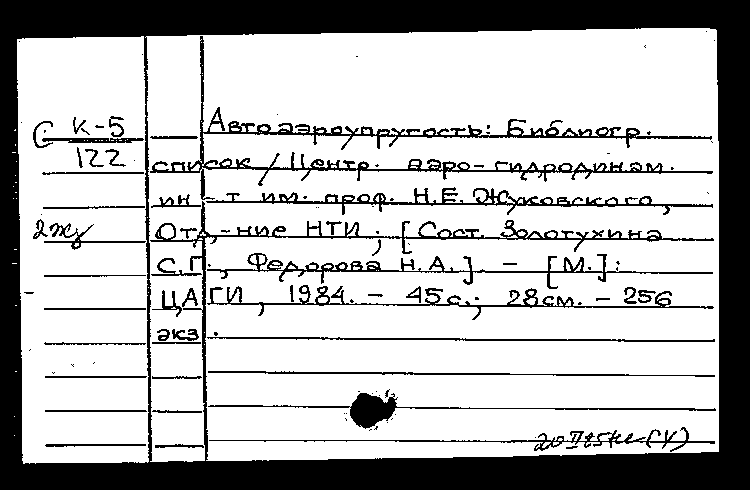 С К-5
122
Автоаэроупругость: Библиогр.
список / Центр. аэро-гидродинам.
ин-т им. проф. Н.Е. Жуковского,
Отд-ние НТИ; [Сост. Золотухина
С.Г., Федорова Н.А.]. — [М.]:
ЦАГИ, 1984. — 45 с.; 28 см. — 256
экз.
2
20 II 85